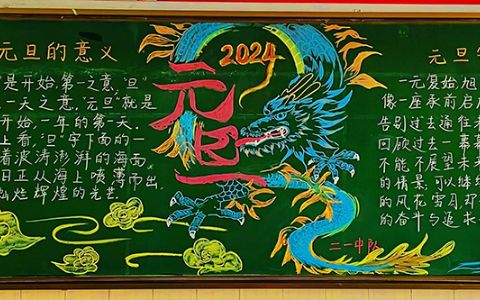 元旦的意义
是开始,第一之意,旦
一天之意."元旦"就是
开始,一年的第一天.
上看,"旦"字下面的一
着波涛澎湃的海面,
日正从海上喷薄而出,
灿烂辉煌的光芒.
2024
元旦
二一中队
元旦
一元复始,旭
像一座承前启
告别过去通往未
回顾过去一幕
不能不展望未
的情景,可以继续
的风花雪月
的奋斗与追求